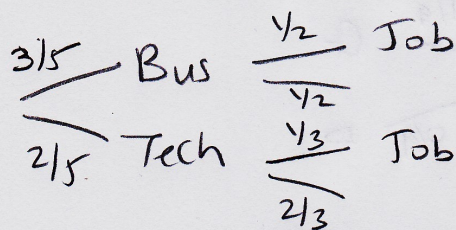 3/5 Bus 1/2 Job
1/2
2/5 Tech 1/3 Job
2/3